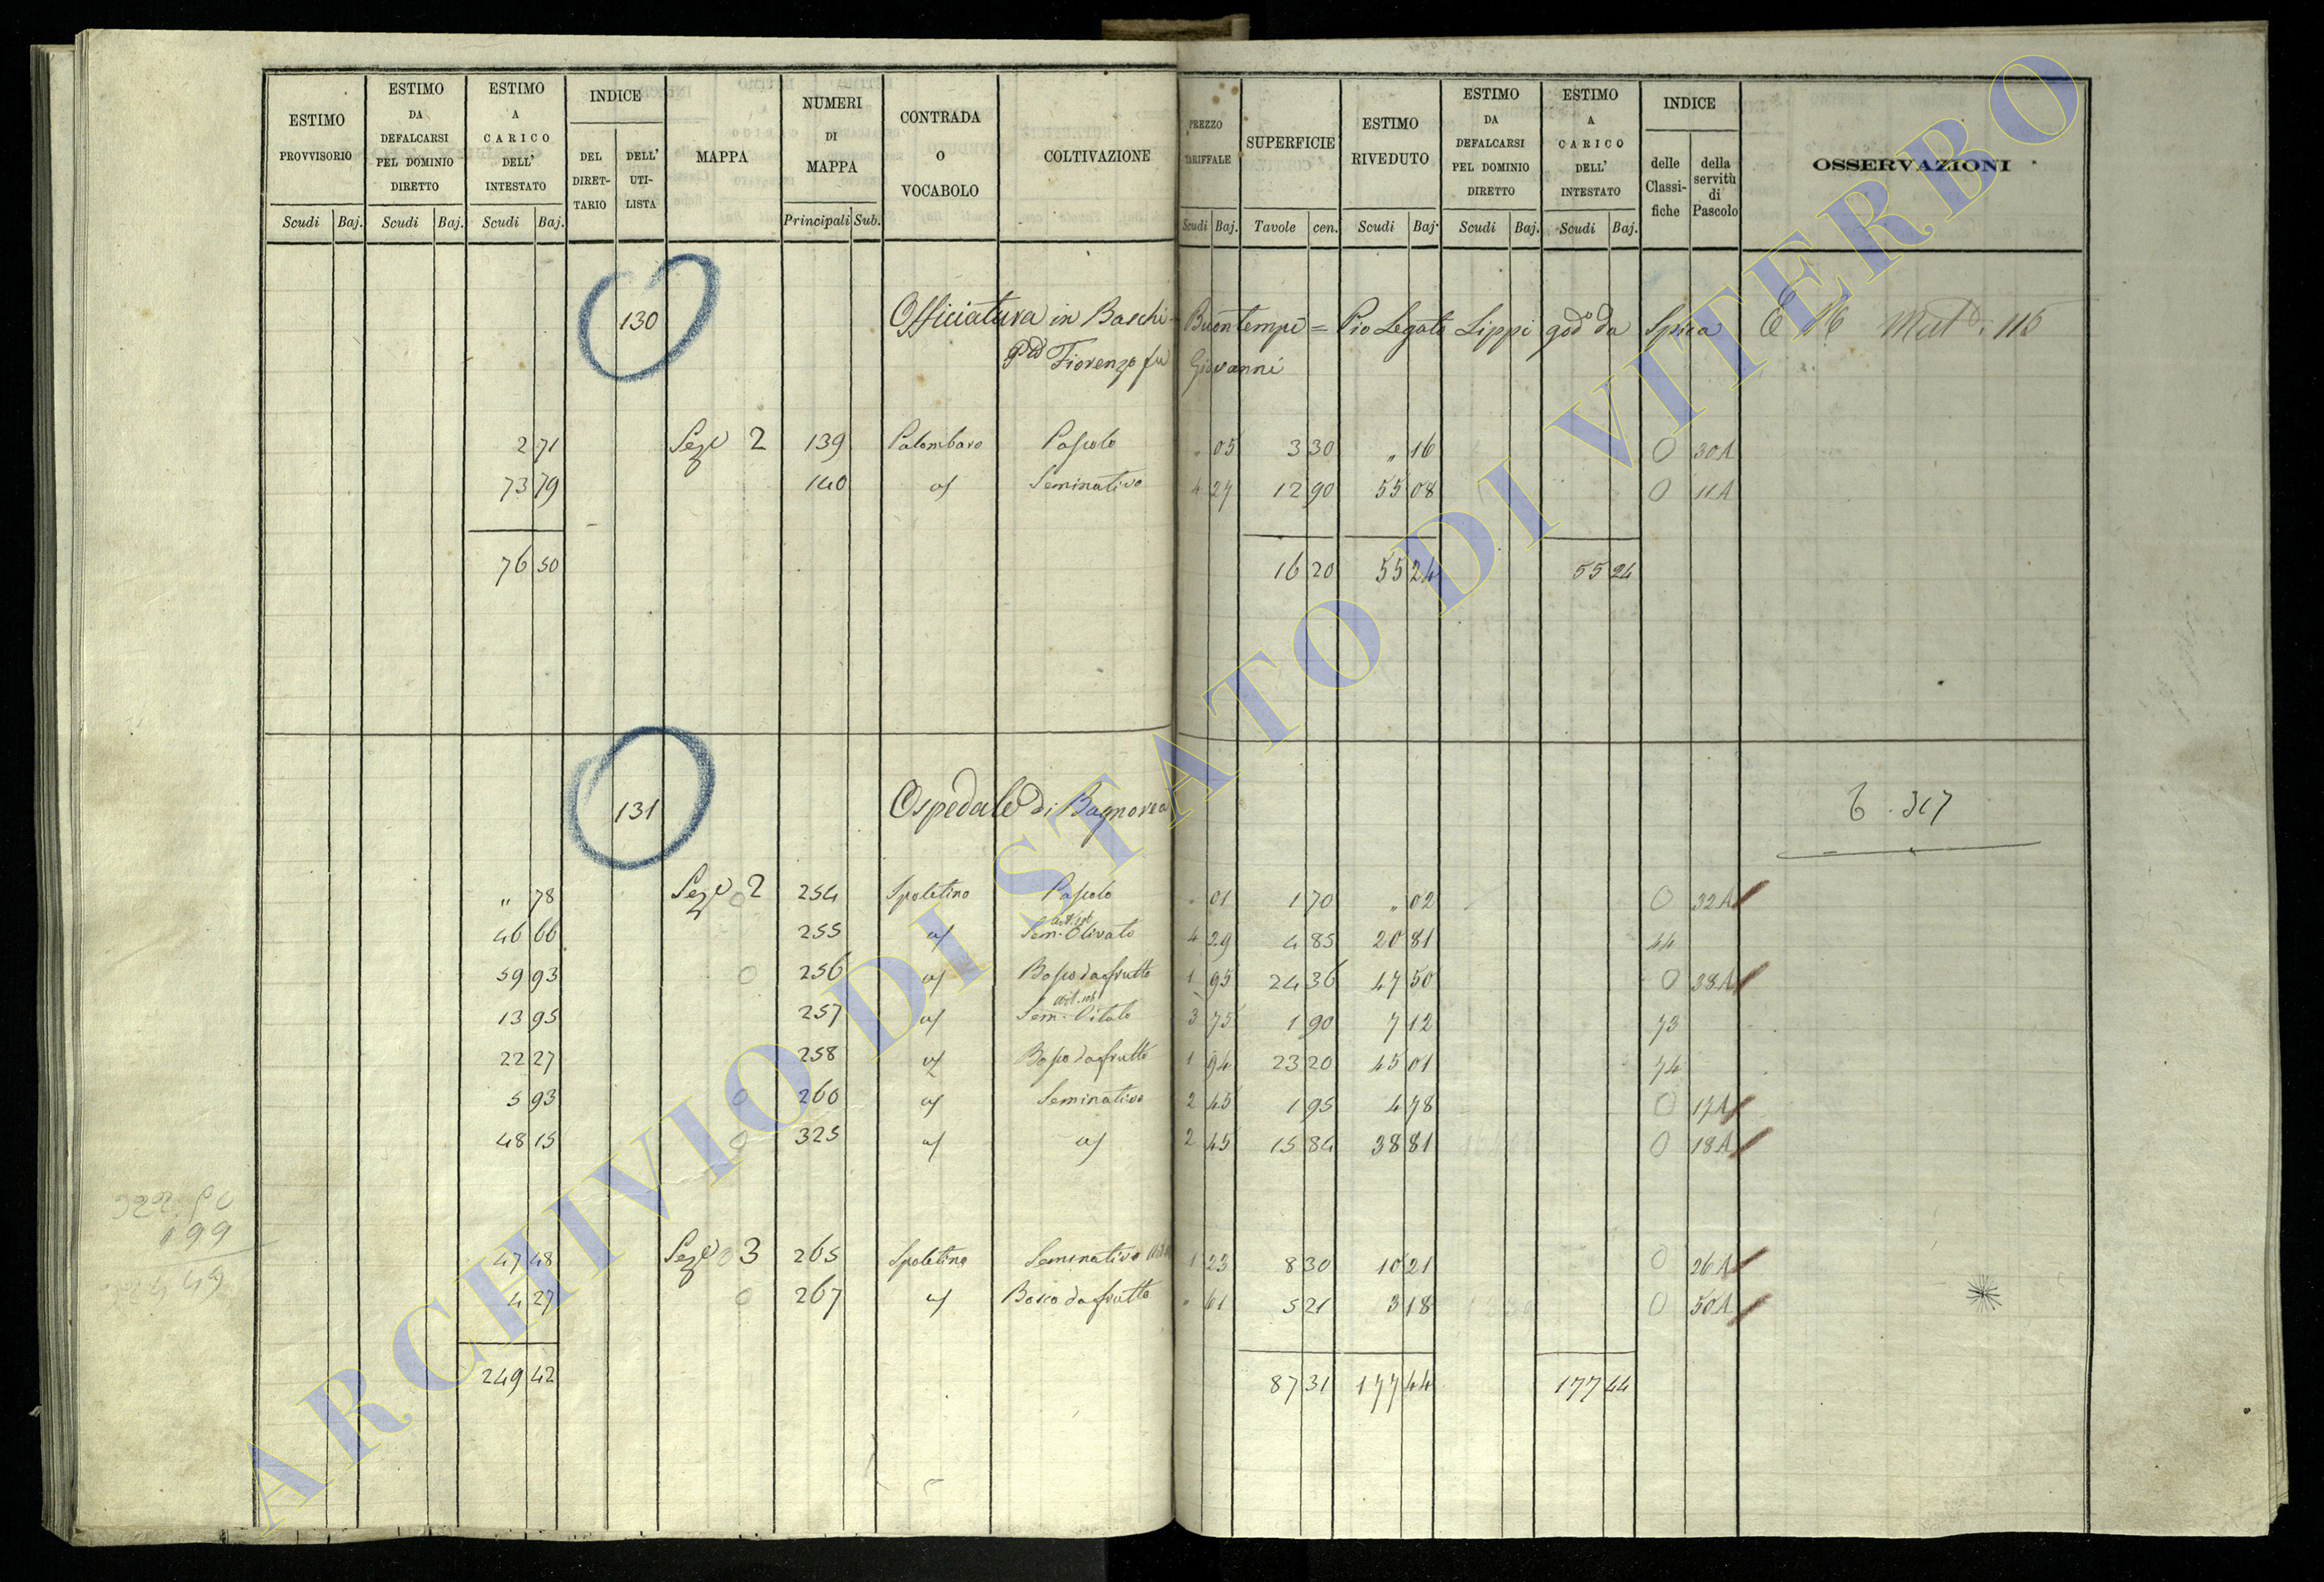 ESTIMO PROVVISORIO
ESTIMO DA DEFALCARSI PEL DOMINIO DIRETTO
ESTIMO A CARICO DELL' INTESTATO
INDICE
DEL DIRET- TARIO
DELL' UTI- LISTA
MAPPA
NUMERI DI MAPPA
CONTRADA O VOCABOLO
COLTIVAZIONE
PREZZO TARIFFALE
SUPERFICIE
ESTIMO RIVEDUTO
ESTIMO DA DEFALCARSI PEL DOMINIO DIRETTO
ESTIMO A CARICO DELL' INTESTATO
INDICE
delle Classi- fiche
della servitù di Pascolo
OSSERVAZIONI
Scudi Baj. Scudi Baj. Scudi Baj. Principali Sub. Scudi Baj. Tavole cen. Scudi Baj. Scudi Baj. Scudi Baj.
130 Officiatura in Baschi Buontempi = Pio Legato Lippi god° da Spica
Fiorenzo fu Giovanni
115
2 71 Sez 2 139 Palombaro Pascolo " 05 3 30 " 16 0 30A
73 79 140 a/ Seminativo 4 27 12 90 55 08 0 11A
76 50 16 20 55 24 55 24
131 Ospedale di Bagnorea
317
" 78 Sez 2 254 Spoletino Pascolo " 01 1 70 " 02 0 32A
46 66 255 a/ Sem. Olivato 4 29 4 85 20 81 44
59 93 0 256 a/ Bosco da frutto 1 95 24 36 47 50 0 38A
13 95 257 a/ Sem. Vitato 3 75 1 90 7 12 73
22 27 258 a/ Bosco da frutto 1 94 23 20 45 01 74
5 93 0 260 a/ Seminativo 2 45 1 95 4 78 0 17A
48 15 0 325 a/ a/ 2 45 15 84 38 81 0 18A
47 48 Sez 0 3 265 Spoletino Seminativo 1 23 8 30 10 21 0 26A
4 27 0 267 a/ Bosco da frutto " 61 5 21 3 18 0 50A
249 42 87 31 177 44 177 44
ARCHIVIO DI STATO DI VITERBO